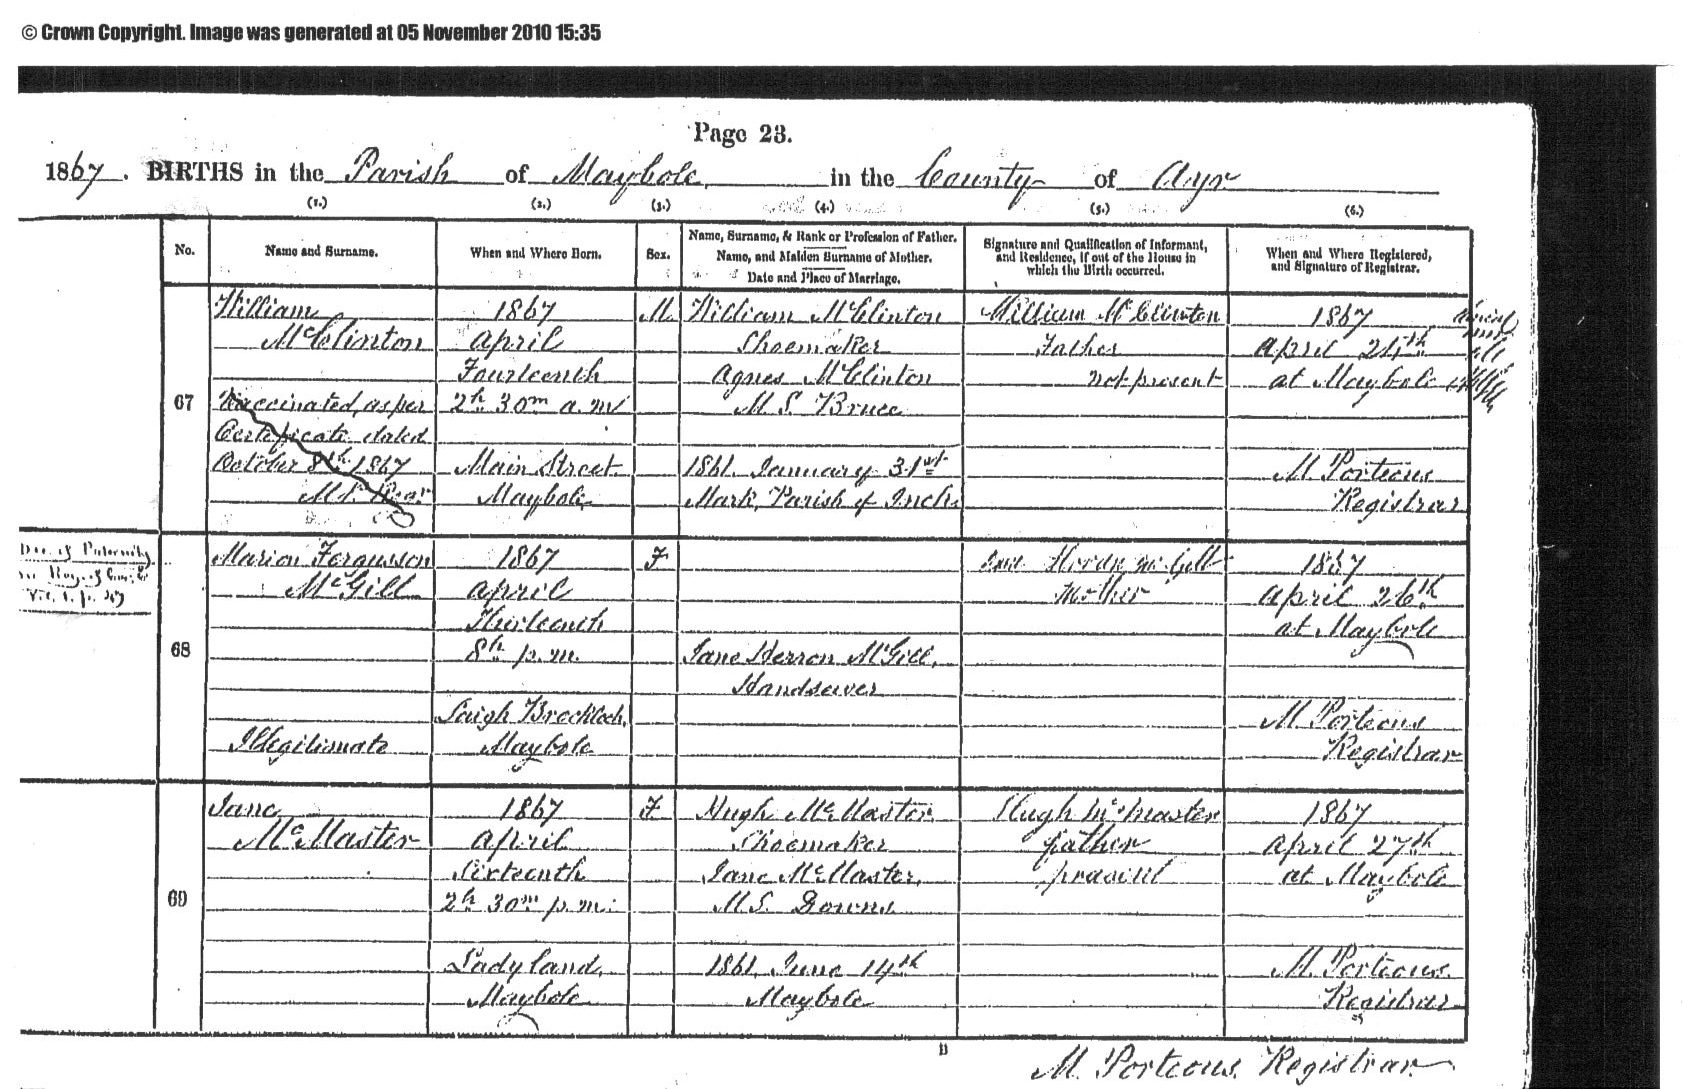 © Crown Copyright. Image was generated at 05 November 2010 15:35
Page 23.
1867. BIRTHS in the Parish of Maybole, in the County of Ayr
(1.) (2.) (3.) (4.) (5.) (6.)
No.
Name and Surname.
When and Where Born.
Sex.
Name, Surname, & Rank or Profession of Father.
Name, and Maiden Surname of Mother.
Date and Place of Marriage.
Signature and Qualification of Informant,
and Residence, if out of the House in
which the Birth occurred.
When and Where Registered,
and Signature of Registrar.
67
William
McClinton
Vaccinated, as per
Certificate dated
October 8th 1867
1867
April
Fourteenth
2h 30m a.m.
Main Street
Maybole
M
William McClinton
Shoemaker
Agnes McClinton
M.S. Bruce
1861, January 31st
Mark, Parish of Inch
William McClinton
Father
not present
1867
April
at Maybole
M. Porteous
Registrar
Dec. of Paternity
68
Marion Fergusson
McGill
Illegitimate
1867
April
Thirteenth
8h p.m.
Laigh Brockloch,
Maybole
F
Jane Herron McGill,
Handsewer
McGill
Mother
1867
April 26th
at Maybole
M. Porteous
Registrar
69
Jane
McMaster
1867
April
Sixteenth
2h 30m p.m.
Ladyland,
Maybole
F
Hugh McMaster
Shoemaker
Jane McMaster,
M.S. Downs
1861, June 14th
Maybole
Hugh McMaster
father
present
1867
April 27th
at Maybole
M. Porteous
Registrar
M. Porteous. Registrar